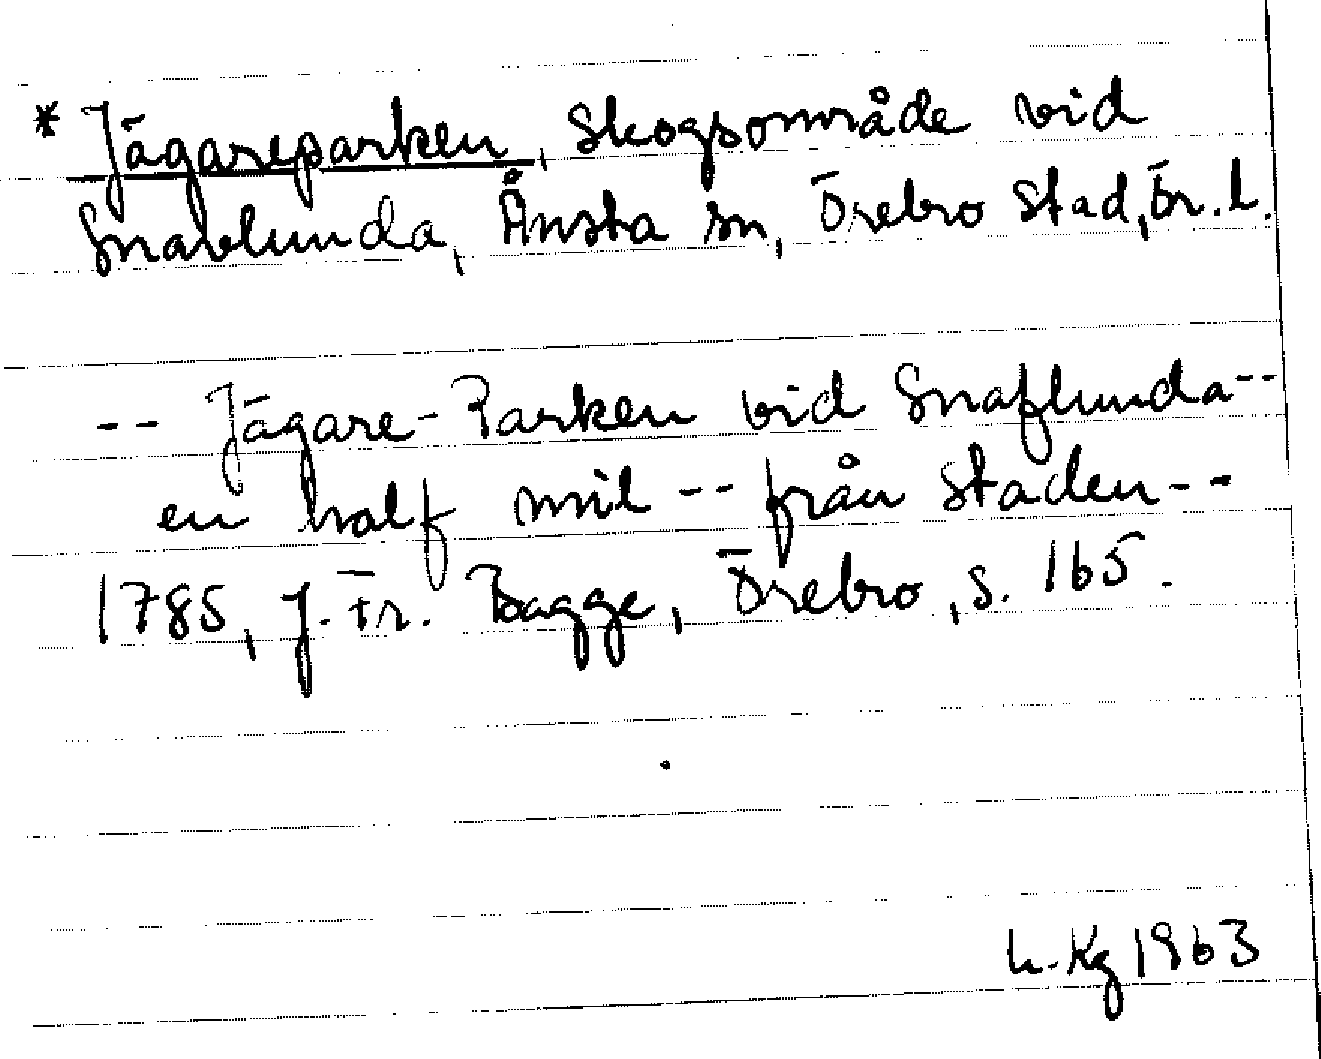 * Jägareparken, skogsområde vid
Snavlunda, Ånsta sn, Örebro stad, Ör. l.
-- Jägare-Parken vid Snaflunda --
en half mil -- från staden --
1785, J. Fr. Bagge, Örebro, s. 165.
L. Kg 1963